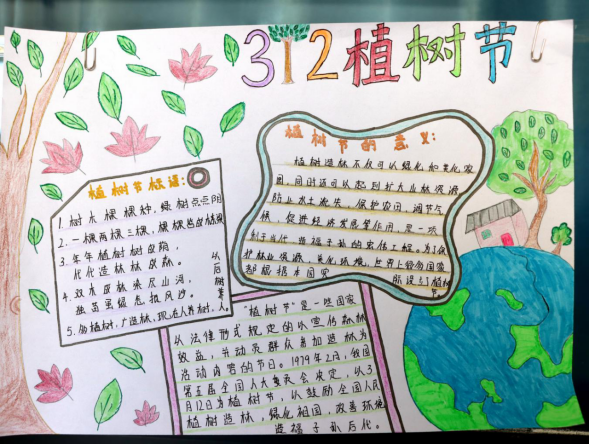 312植树节
植树节标语：
1. 树木棵棵种，绿树点点阴
2. 一棵两棵三棵，棵棵
3. 年年植树树成荫，
代代造林林成森。
4. 双木成林米尺山河，
5. 勤植树，广造林，现在人养树，
以后树养人。
植树节的意义：
植树造林不仅可以绿化和美化家
园，同时还可以起到扩大山林资源，
防止水土流失，保护农田，调节气
候，促进经济发展等作用，是一项
利于当代，造福子孙的宏伟工程，为了保
护林业资源，美化环境，世界上许多国家
都根据本国
所设立了植树
节。
“植树节”是一些国家
以法律形式规定的以宣传森林
效益，并动员群众参加造林为
活动内容的节日。1979年2月，我国
第五届全国人大常委会决定，以3
月12日为植树节，以鼓励全国人民
植树造林，绿化祖国，改善环境，
造福子孙后代。